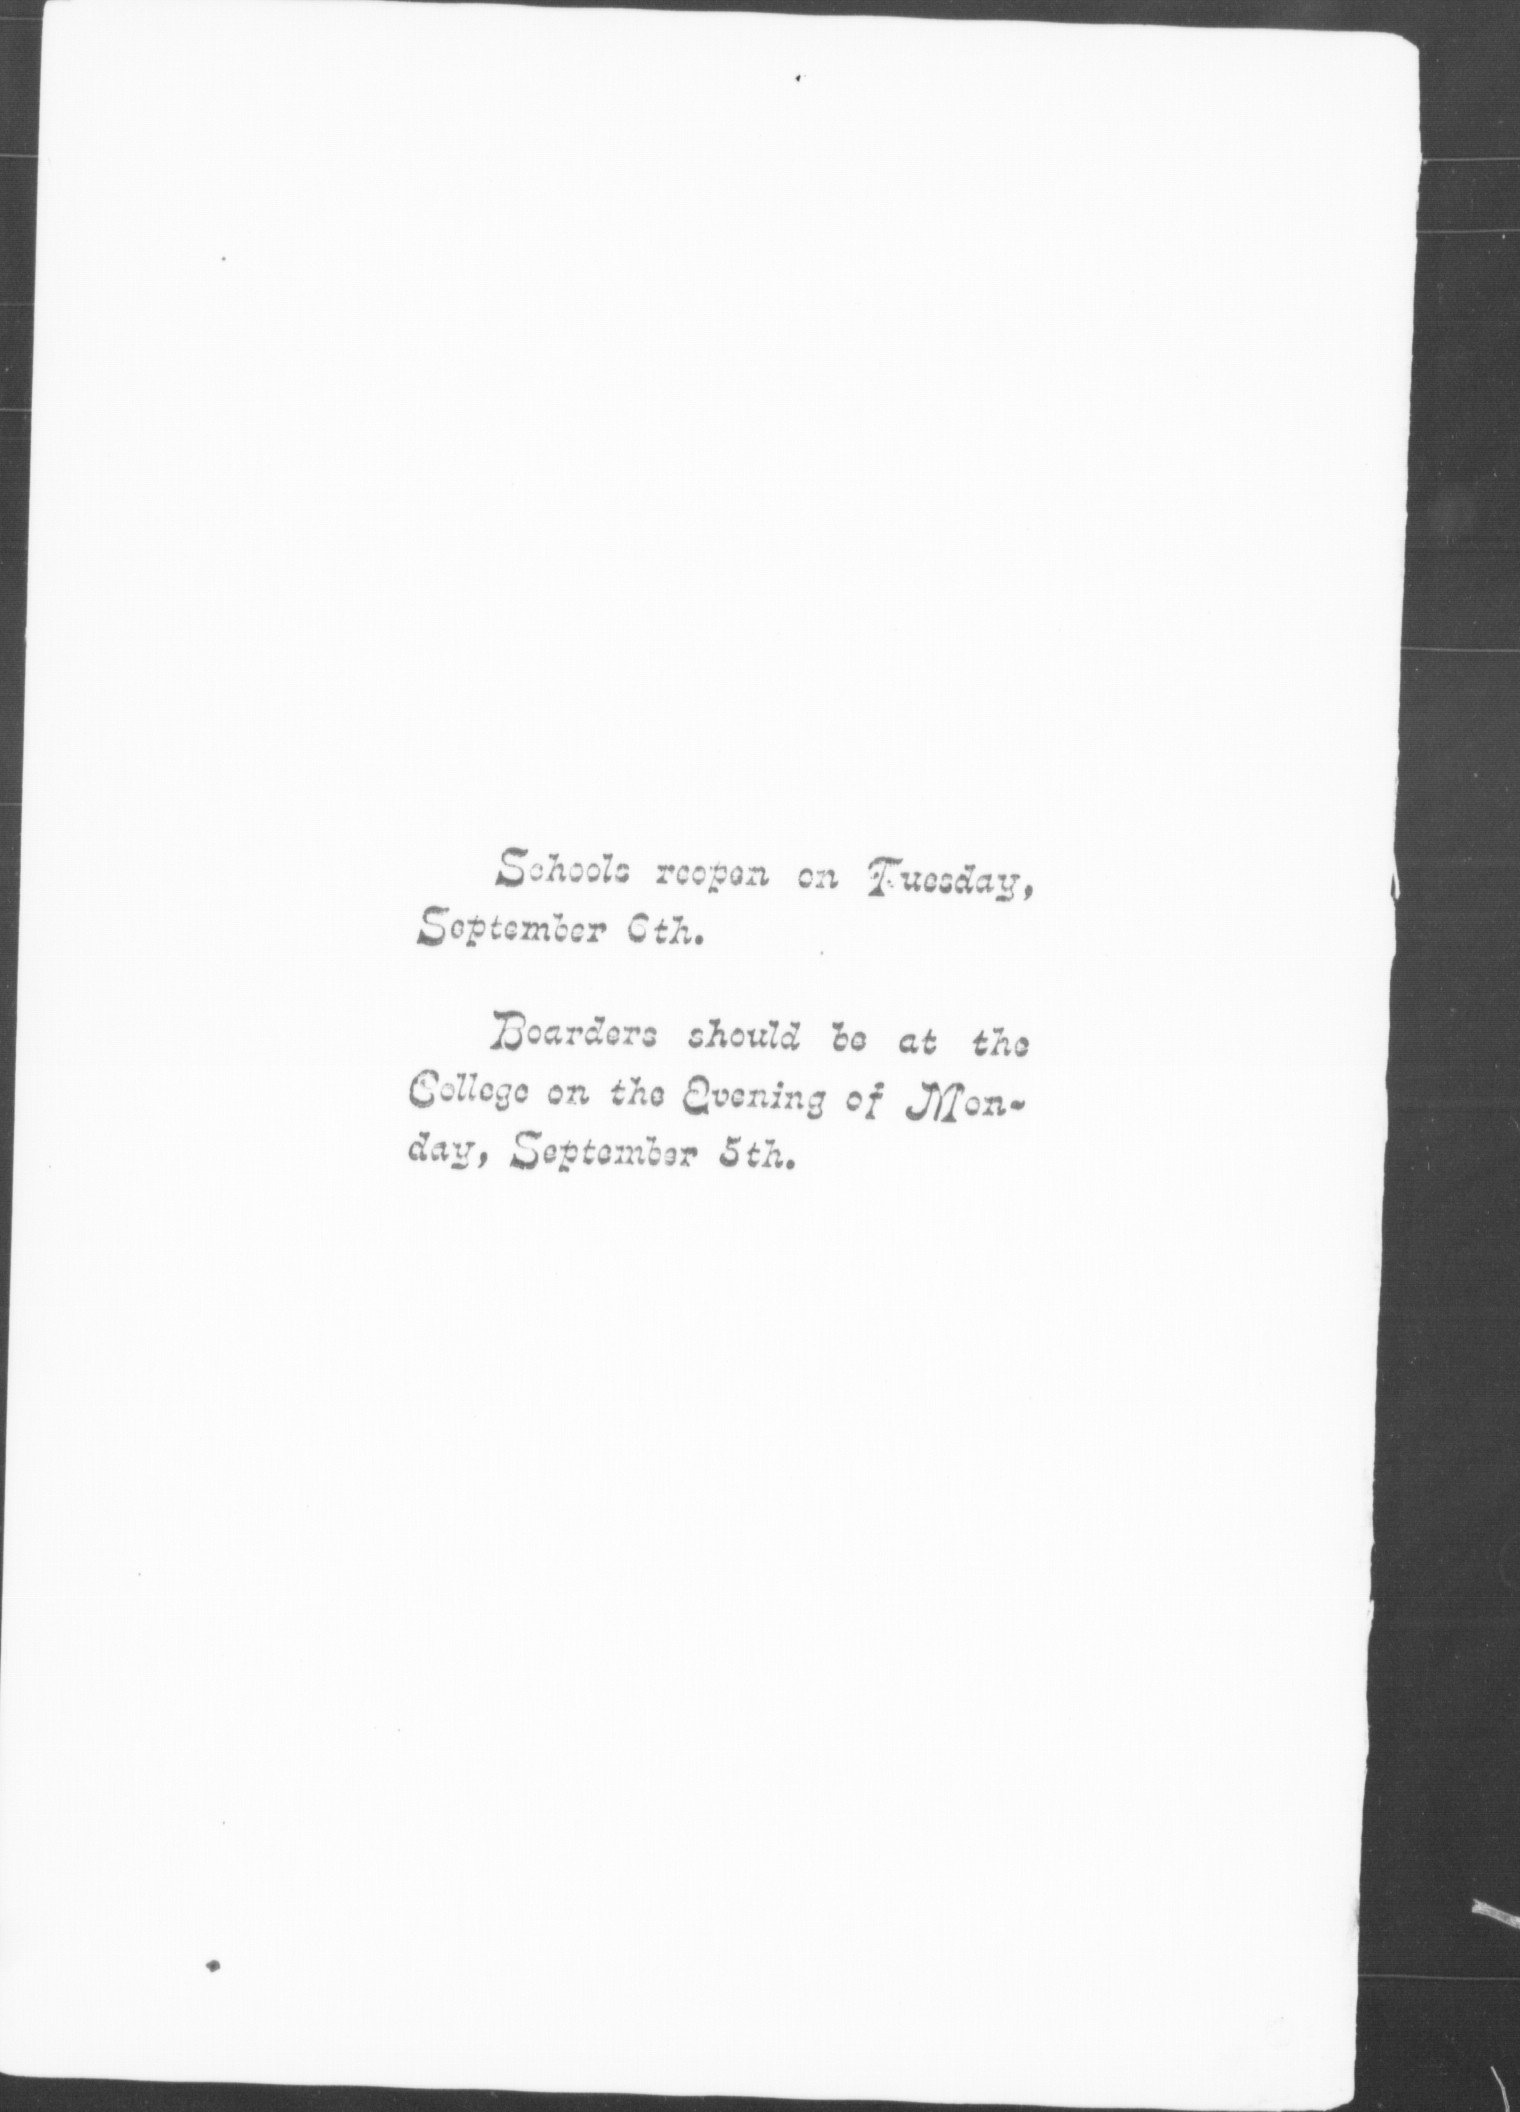 Schools reopen on Tuesday,
September 6th.
Boarders should be at the
College on the Evening of Mon-
day, September 5th.